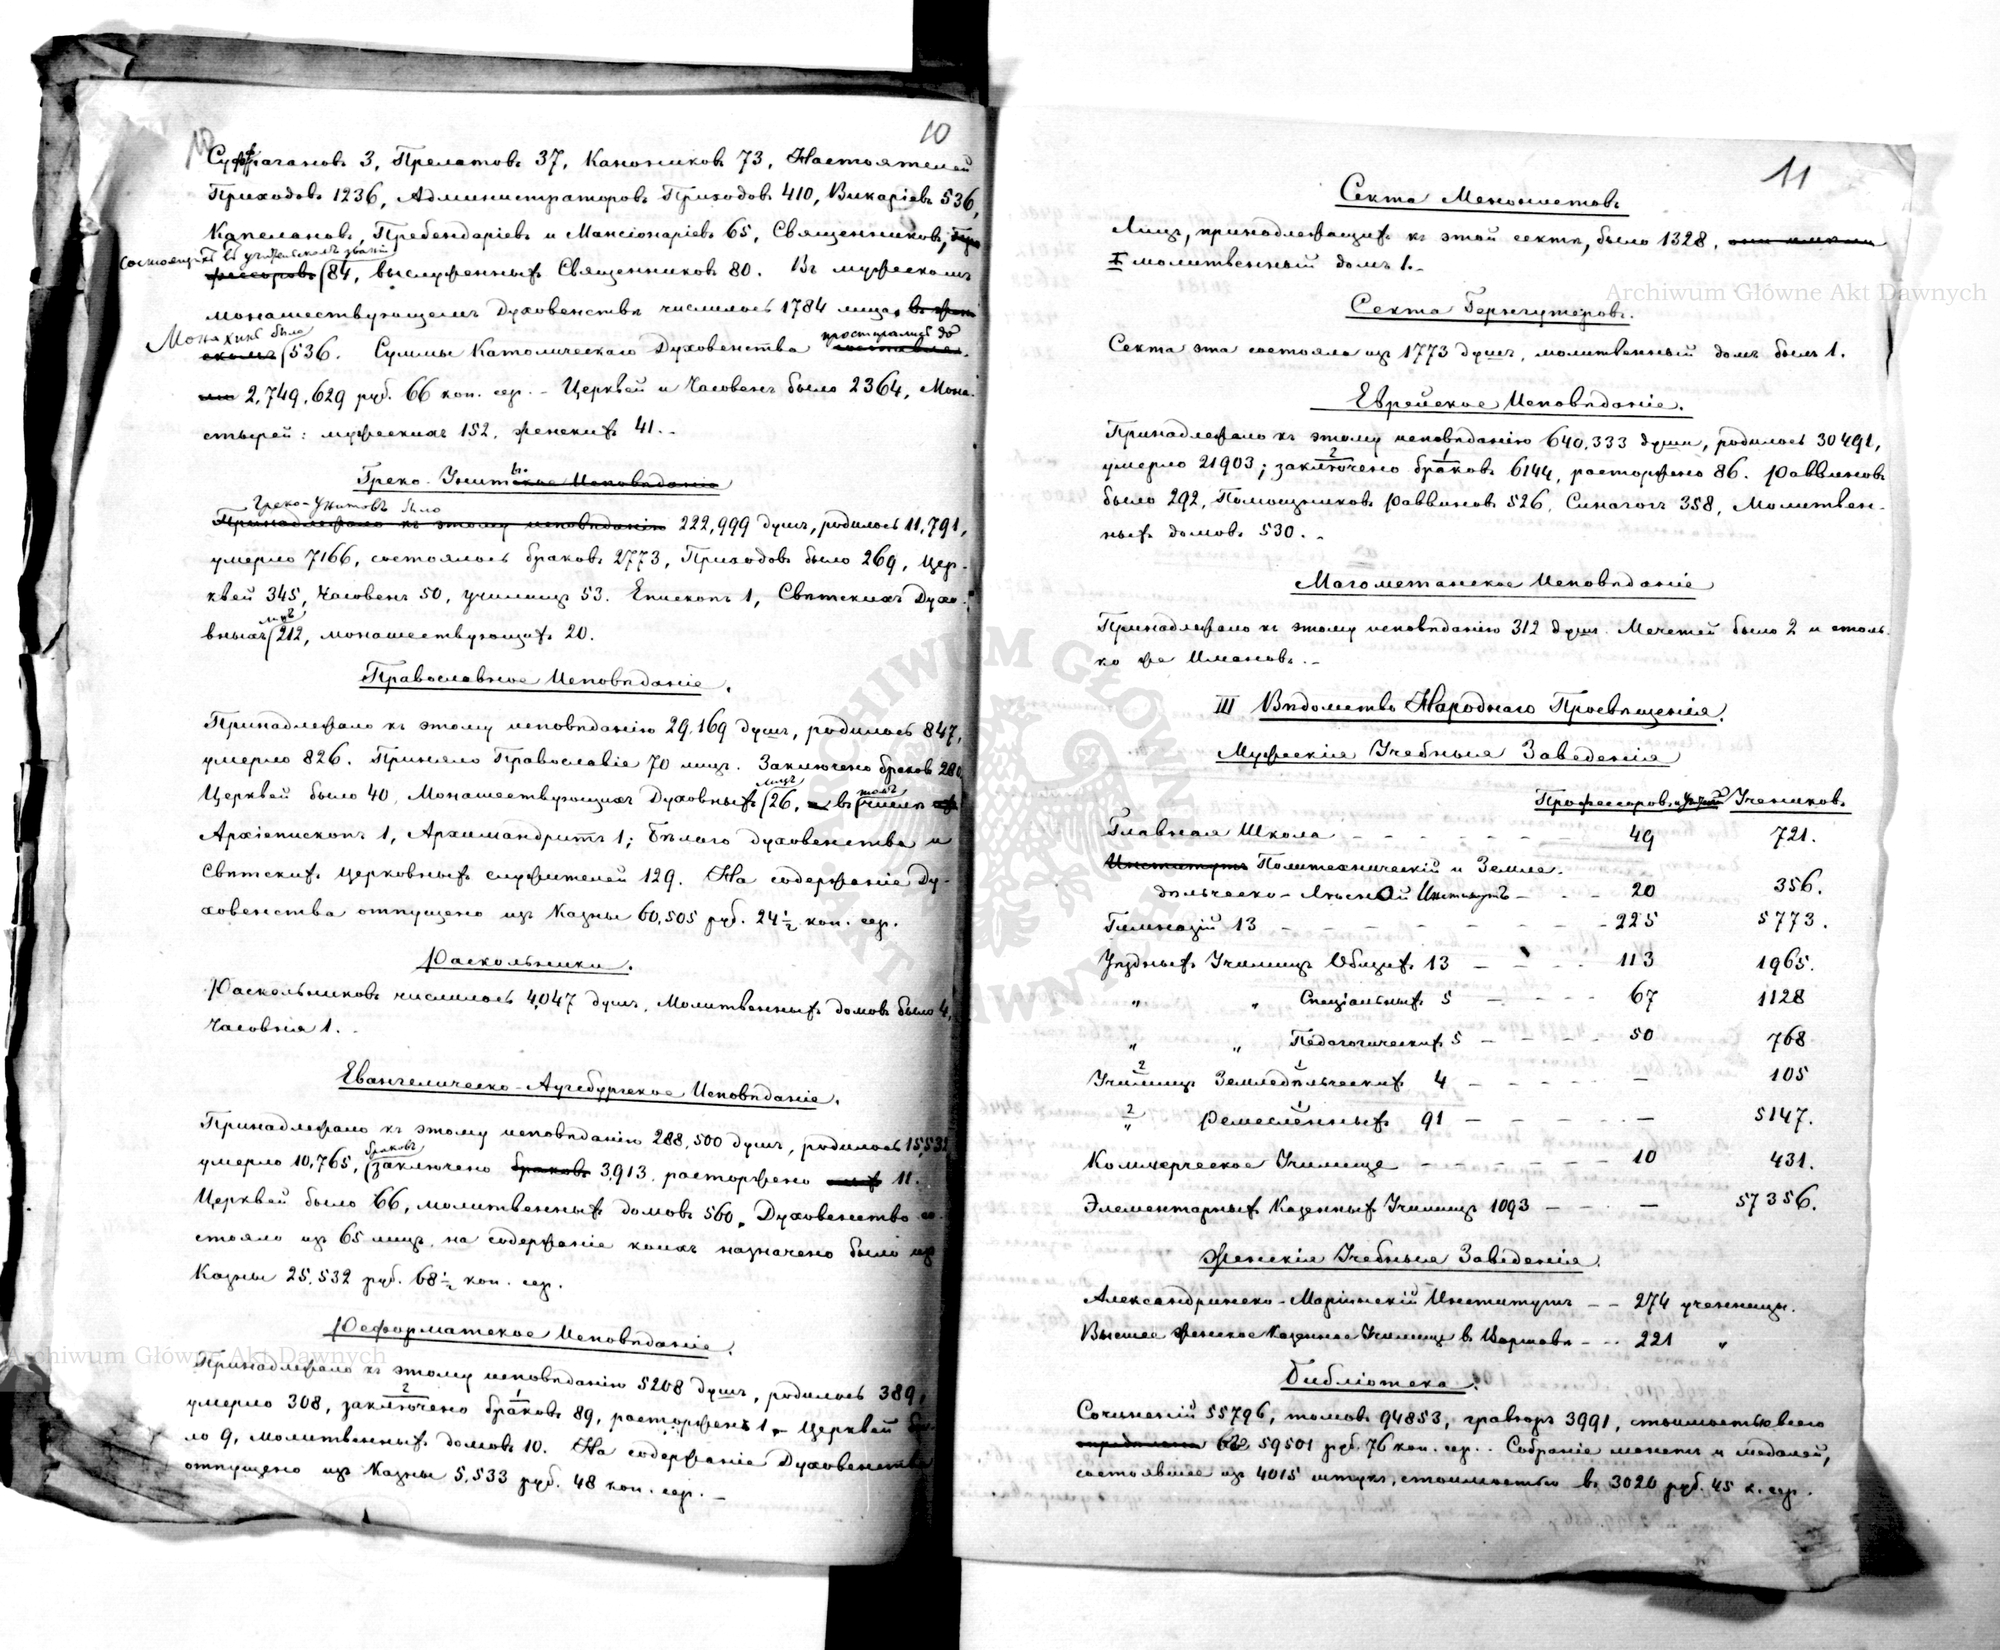 10
Суффрагановъ 3, Прелатовъ 37, Канониковъ 73, Настоятелей
Приходовъ 1236, Администраторовъ Приходовъ 410, Викаріевъ 536,
Капелановъ, Пребендаріевъ и Мансіонаріевъ 65, Священниковъ, Про
состоящихъ въ учительскомъ званіи
фессоровъ 84, выслуженныхъ Священниковъ 80. Въ мужескомъ
монашествующемъ Духовенствѣ числилось 1784 лица, въ жен
Монахинь было простирались до
скомъ 536. Суммы Католическаго Духовенства составля
ли 2,749,629 руб. 66 коп. сер. – Церквей и Часовенъ было 2364, Мона-
стырей: мужескихъ 152, женскихъ 41. –
Греко-Унитское Исповѣданіе
ы.
Греко-Унитовъ было
Принадлежало къ этому исповѣданію 222,999 душъ, родилось 11,791,
умерло 7166, состоялось браковъ 2773, Приходовъ было 269, Цер-
квей 345, Часовенъ 50, училищъ 53. Епископъ 1, Свѣтскихъ Духо-
лицъ
вныхъ 212, монашествующихъ 20.
Православное Исповѣданіе.
Принадлежало къ этому исповѣданію 29,169 душъ, родилось 847,
умерло 826. Приняло Православіе 70 лицъ. Заключено браковъ 280
лицъ томъ
Церквей было 40, Монашествующихъ Духовныхъ 26, въ числѣ
Архіепископъ 1, Архимандритъ 1; Бѣлаго духовенства и
Свѣтскихъ церковныхъ служителей 129. На содержаніе Ду-
ховенства отпущено изъ Казны 60,505 руб. 24½ коп. сер.
Раскольники.
Раскольниковъ числилось 4,047 душъ, Молитвенныхъ домовъ было 4,
Часовня 1. –
Евангелическо-Аугсбургское Исповѣданіе.
Принадлежало къ этому исповѣданію 288,500 душъ, родилось 15,532
браковъ
умерло 10,765, заключено браковъ 3,913, расторжено 11.
Церквей было 66, молитвенныхъ домовъ 560. Духовенство со-
стояло изъ 65 лицъ, на содержаніе коихъ назначено было изъ
Казны 25,532 руб. 68½ коп. сер.
Реформатское Исповѣданіе.
Принадлежало къ этому исповѣданію 5208 душъ, родилось 389,
2 1
умерло 308, заключено браковъ 89, расторженъ 1. – Церквей бы-
ло 9, молитвенныхъ домовъ 10. На содержаніе Духовенства
отпущено изъ Казны 5,533 руб. 48 коп. сер. –
11
Секта Менонистовъ
Лицъ, принадлежащихъ къ этой сектѣ, было 1328, они имѣли
молитвенный домъ 1. –
Секта Гернгутеровъ.
Секта эта состояла изъ 1773 душъ, молитвенный домъ былъ 1.
Еврейское Исповѣданіе.
Принадлежало къ этому исповѣданію 640,333 души, родилось 30491,
2 1
умерло 21903; заключено браковъ 6144, расторжено 86. Раввиновъ
было 292, Помощниковъ Раввиновъ 526, Синагогъ 358, Молитвен-
ныхъ домовъ 530. –
Магометанское Исповѣданіе
Принадлежало къ этому исповѣданію 312 душъ. Мечетей было 2 и столь-
ко же Имановъ. –
III Вѣдомство Народнаго Просвѣщенія.
Мужескія Учебныя Заведенія
Профессоровъ и Учителей Учениковъ
Главная Школа – – – – – – – 49 721.
Институтъ Политехническій и Земле-
дѣльческо-Лѣсной Институтъ – – – 20 356.
Гимназій 13 – – – – – – – – 225 5773.
Уѣздныхъ Училищъ Общихъ 13 – – – 113 1965.
„ „ Спеціальныхъ 5 – – – – 67 1128
„ „ Педагогическихъ 5 – – – – 50 768
2 1
Училищъ Земледѣльческихъ 4 – – – – – 105
2 1
„ Ремесленныхъ 91 – – – – – 5147.
Коммерческое Училище – – – – – – 10 431.
Элементарныхъ Казенныхъ Училищъ 1093 – – – – 57356.
Женскія Учебныя Заведенія.
Александринско-Маріинскій Институтъ – – 274 ученицы.
Высшее Женское Казенное Училище въ Варшавѣ – – 221 „
Библіотека.
Сочиненій 55796, томовъ 94853, гравюръ 3991, стоимостью всего
опредѣлена въ 59501 руб. 76 коп. сер. – Собраніе монетъ и медалей,
состоявшее изъ 4015 штукъ, стоимостью въ 3020 руб. 45 к. сер.
Archiwum Główne Akt Dawnych
Archiwum Główne Akt Dawnych
ARCHIWUM GŁÓWNE AKT DAWNYCH